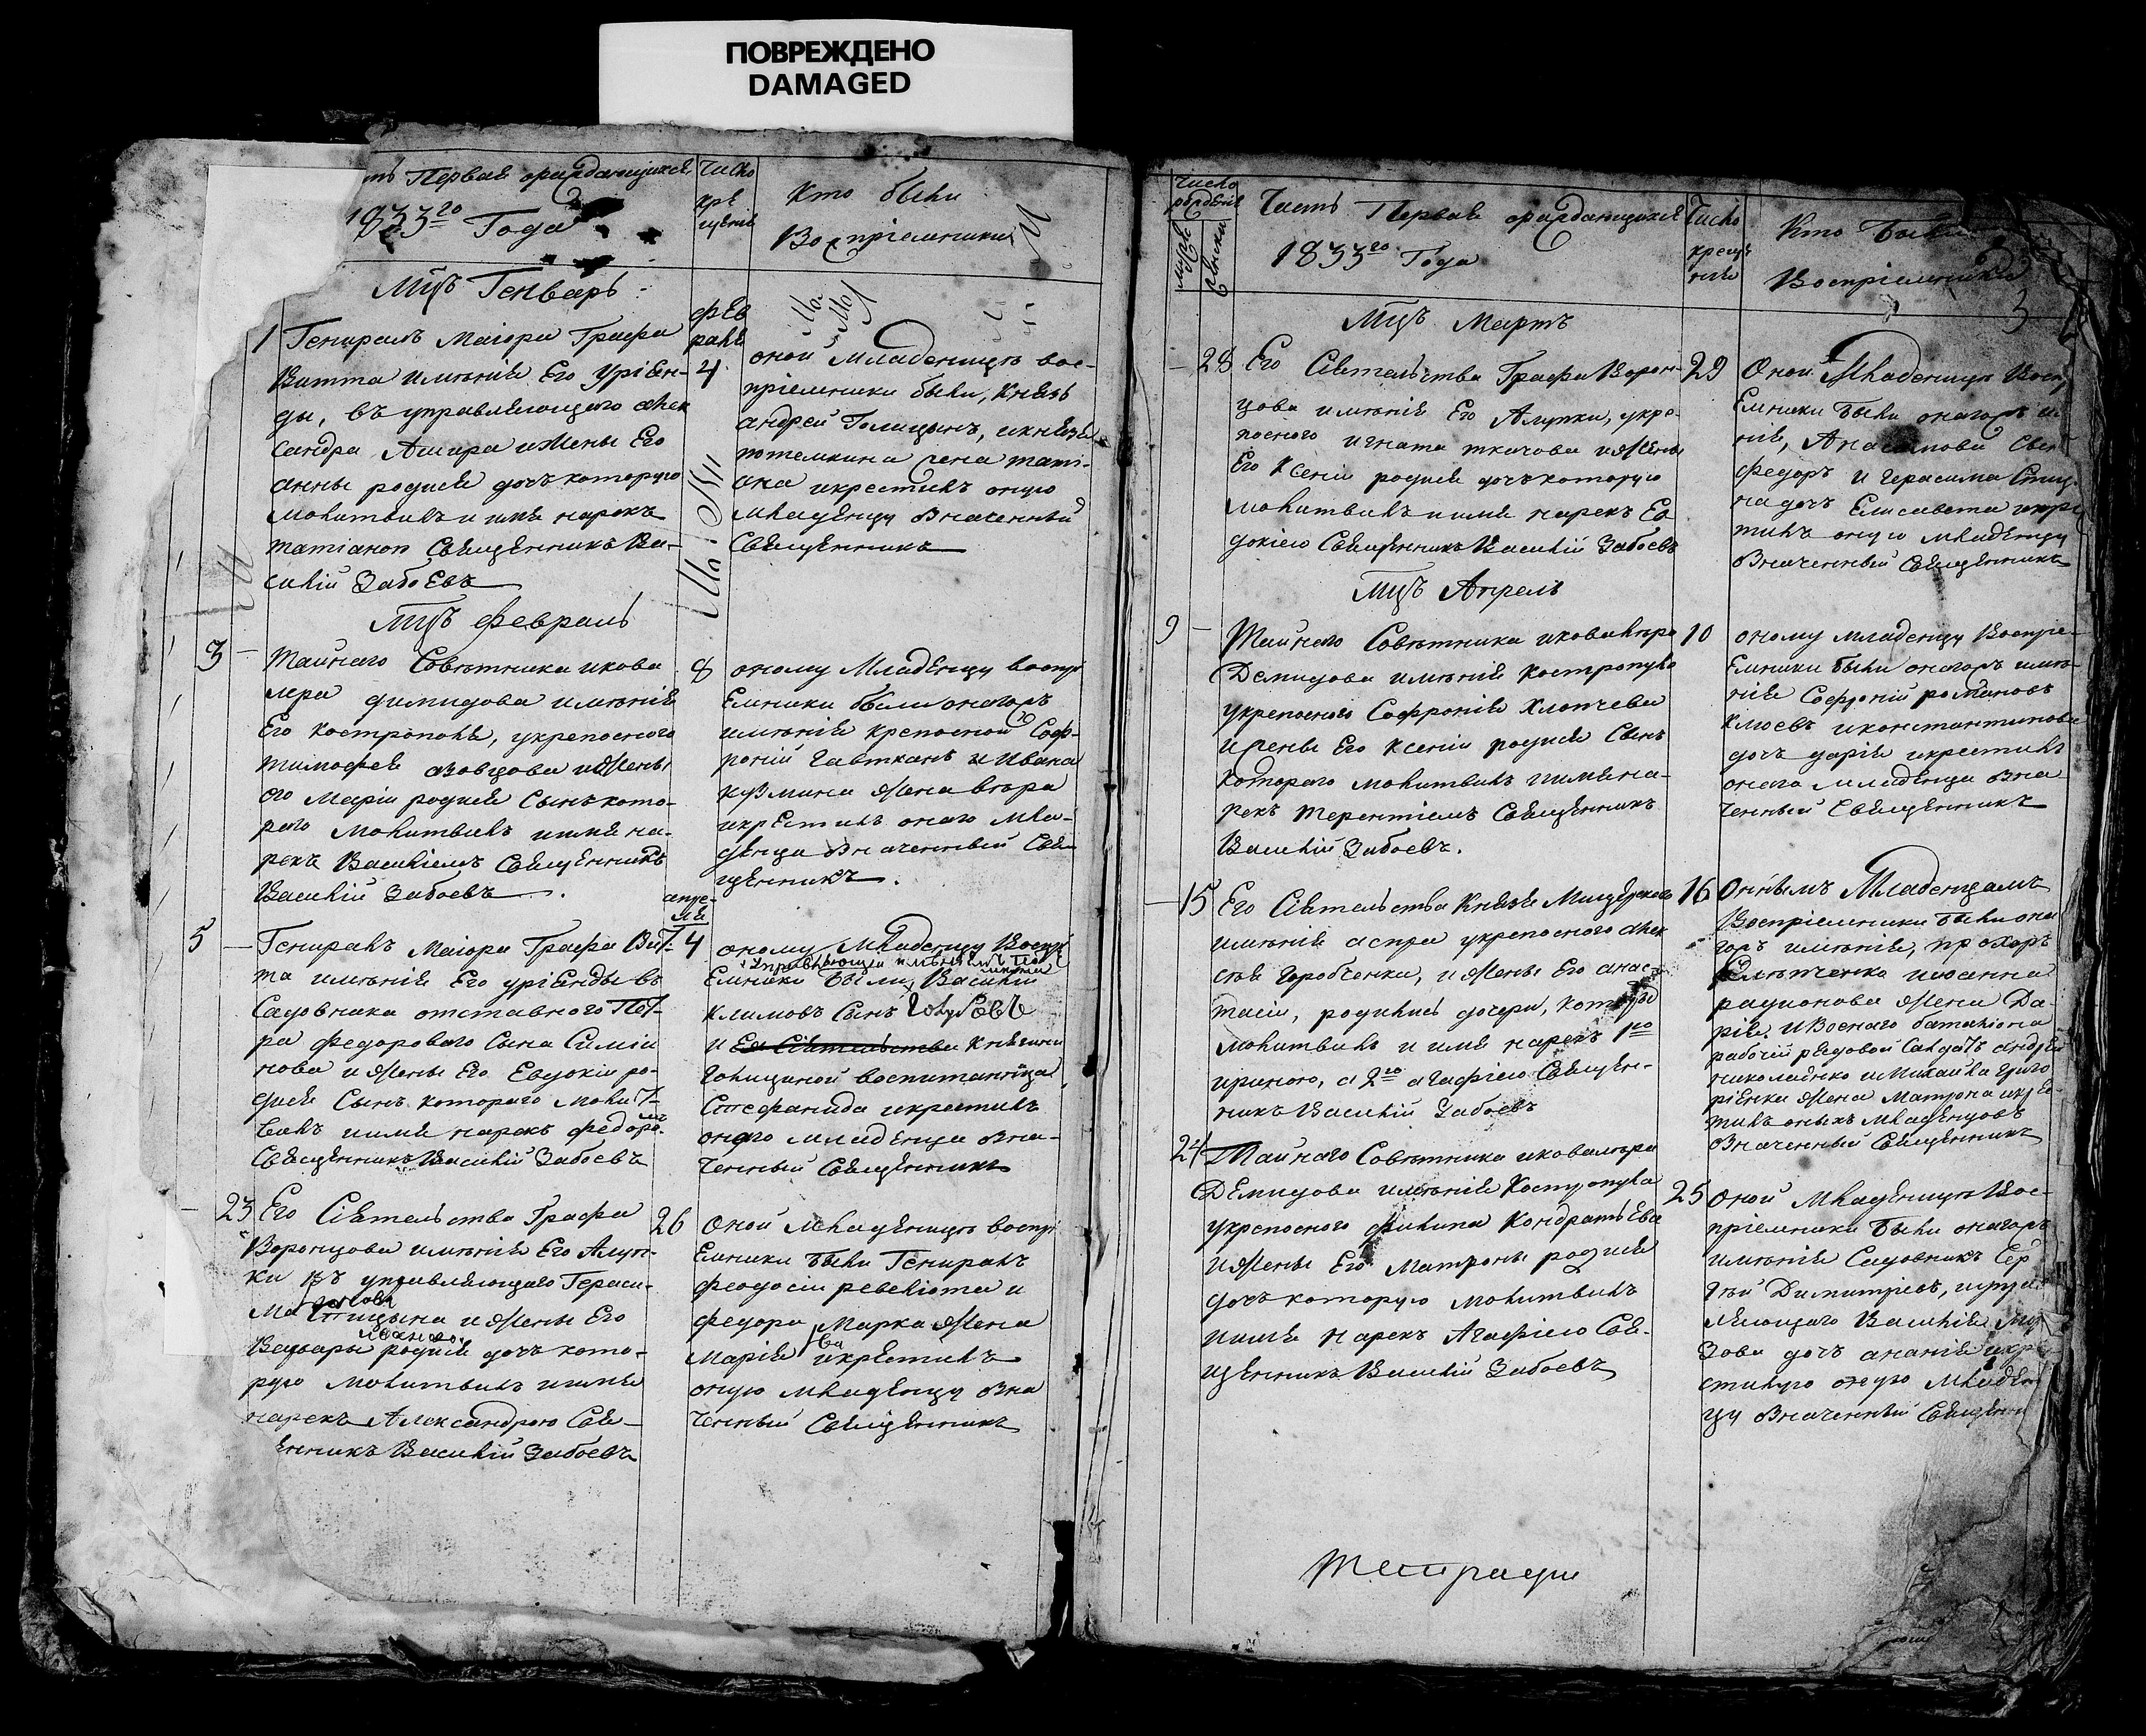 ПОВРЕЖДЕНО
DAMAGED
Первая ораждающихся
1833го Года
Число
кре
щенiе
Кто были
Воспрiемники
Мцъ Генварь
1
Генералъ Маiора Графа
Витта именiя Его Урiен-
ды, въ управляющаго Алек
сандра Ашера и Жены Его
Анны родися дочь которую
молитвилъ и имя нарекъ
татiаною Священникъ Ва-
силiй Забоевъ
фев
раля
4
оной Младеницѣ вос-
прiемники были, Князь
андрей Голицынъ, и князя
потемкина жена тати-
ана и крестилъ оную
младенцу Означенный
Священникъ
Мцъ Февраль
3
Тайнаго Совѣтника икова
лера димидова имѣнiя
Его Костропола, укрепоснаго
тимофея азовцова и Жены
его Марiи родися Сынъ кото-
раго Молитвилъ и имя на-
рекъ Василiемъ Священникъ
Василiй Забоевъ
8
оному Младенцу воспрi
Емники были оногожъ
имѣнiя крепосной Соф-
ронiй Гавткань и Ивана
кузмина Жена вѣра
и крестилъ онаго мла-
денца Означенный Свя
щенникъ.
5
Генералъ Маiора Графа Вит-
та имѣнiя Его урiенды въ
Садовника отставного Пет-
ра федороваго Сына Симiа
нова и Жены Его Евдокiи ро-
дися Сынъ котораго Молит-
вилъ и имя нарекъ федоромъ
Священникъ Василiй Забоевъ
апре-
ля
4
оному Младенцу Воспрi
Управляющiй имѣнiемъ
Емники были Василiй
климовъ Сынъ Голубовъ
и Ея Сiятельства Княгини
Голициной воспитанница
Стефанида и крестилъ
онаго младенца Озна-
ченный Священникъ
23
Его Сiятельства Графа
Воронцова имѣнiя Его Алуп-
ки въ управляющаго Гераси-
ма Яковлева
Птицына и Жены Его
Варвары родися дочь кото-
рую молитвилъ и имя
нарекъ Александрою Свя-
щенникъ Василiй Забоевъ
26
Оной Младеницѣ воспрi
Емники были Генералъ
феодосiй ревелiоти и
федора Марка Жена
Марiя и крестилъ
оную младенцу Озна
ченный Священникъ
Число
рожденiя
мужеска
Женска
Часть Первая ораждающихся
1833го Года
Число
креще
нiя
Кто Были
Воспрiемники
3
Мцъ Мартъ
28
Его Сiятельства Графа Ворон-
цова имѣнiя Его Алупки, укре-
посного игната ткачова и Жены
Его Ксенiи родися дочь которую
молитвилъ и имя нарекъ Ев
докiею Священникъ Василiй Забоевъ
29
Оной Младеницѣ Воспрi
Емники были оногожъ имѣ
нiя,
федоръ и Герасима Птицы
на дочь Елисавета и крес
тилъ оную младенцу
Означенный Священникъ
Мцъ Апрель
9
Тайнаго Совѣтника и ковалера
Демидова имѣнiя костропула
укрепоснаго Софронiя Хлопчева
и Жены Его ксенiи родися Сынъ
котораго молитвилъ и имя на-
рекъ терентiемъ Священникъ
Василiй Забоевъ.
10
оному младенцу Воспрi-
Емники были оногожъ имѣ-
нiя Софронiй романовъ
клюевъ и константинова
дочь дарiя и крестилъ
онаго младенца Озна
ченный Священникъ
15
Его Сiятельства Князя Мищерскаго
имѣнiя аспра укрепоснаго Алек
сѣя Горобченка, и Жены Его анас-
тасiи, родились дочери, которые
молитвилъ и имя нарекъ 1ю
ириною, а 2ю агафiею Священ-
никъ Василiй Забоевъ
16
Онымъ Младенцамъ
Воспрiемники были оно
гожъ имѣнiя, прохоръ
и иоанна
радионова Жена Да-
рiя, и Военаго баталiона
рабочiй рядовой Салдатъ андрей
николаенко и Михайла григо
рiенка Жена Матрона и крес-
тилъ оныхъ младенцовъ
Означенный Священникъ
24
Тайнаго Совѣтника и ковалера
Демидова имѣнiя Костропула
укрепоснаго филипа Кондратьева
и Жены Его Матроны родися
дочь которую молитвилъ
и имя нарекъ Агафiею Свя-
щенникъ Василiй Забоевъ
25
Оной Младеницѣ Вос-
прiемники были оногожъ
имѣнiя Садовникъ Сер
гѣй Димитрiевъ, и управ
ляющаго Василiя
зова дочь ананiя и кре
стилъ оную Младен
цу Означенный Священни
тетради